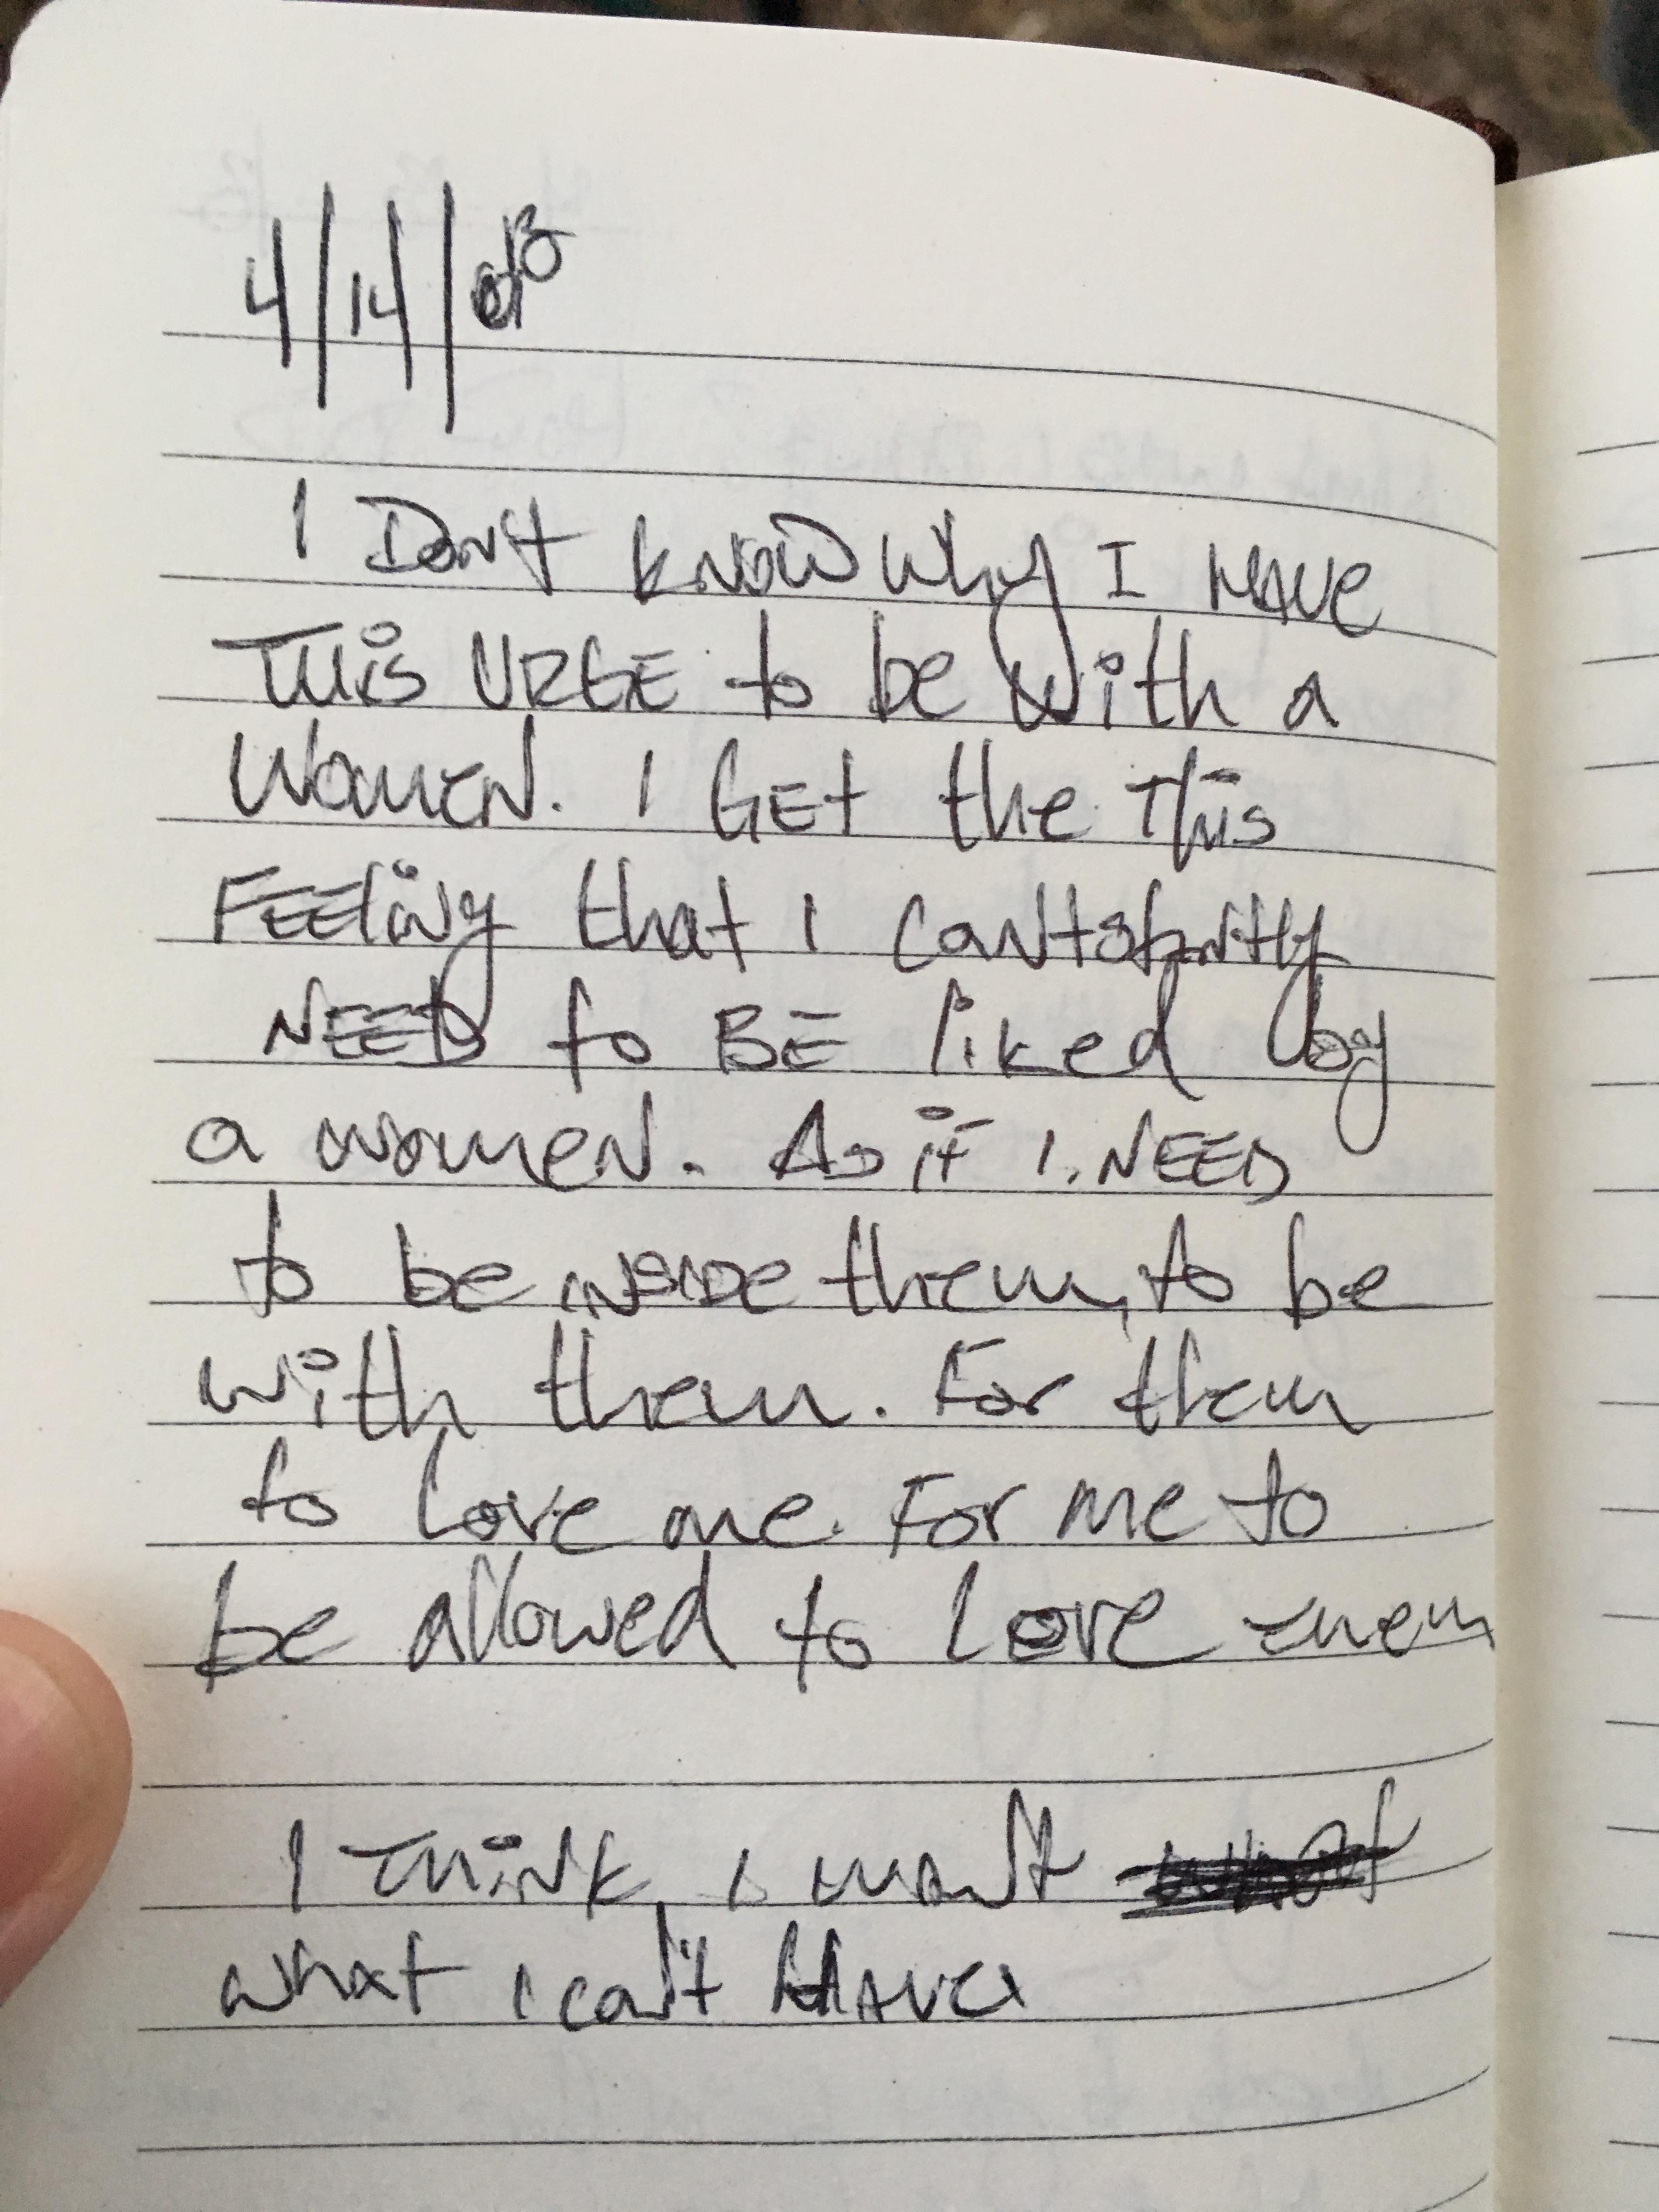 4/14/13
I Don't know why I HAVE
THis URGE to be with a
Women. I GEt the This
FEEliNg that I
NEED to BE liked by
a women. As iF I NEED
to be iNSIDe them, to be
with them. For them
to love me. For me to
be allowed to love them
I THiNK, I want
what I can't HAVE